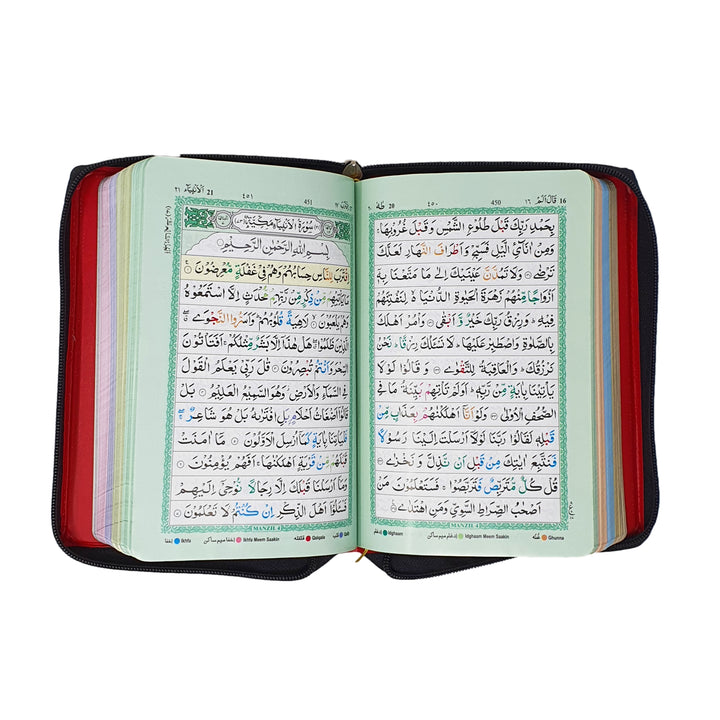 ١٦ قَالَ اَلَمْ 16 450 ٤٥٠ طٰهٰ 20
بِحَمْدِ رَبِّكَ قَبْلَ طُلُوْعِ الشَّمْسِ وَقَبْلَ غُرُوْبِهَا ۚ
وَمِنْ اٰنَآئِ الَّيْلِ فَسَبِّحْ وَاَطْرَافَ النَّهَارِ لَعَلَّكَ
تَرْضٰى ۝ وَلَا تَمُدَّنَّ عَيْنَيْكَ اِلٰى مَا مَتَّعْنَا بِهٖٓ
اَزْوَاجًا مِّنْهُمْ زَهْرَةَ الْحَيٰوةِ الدُّنْيَا ۙ لِنَفْتِنَهُمْ
فِيْهِ ؕ وَرِزْقُ رَبِّكَ خَيْرٌ وَّاَبْقٰى ۝ وَاْمُرْ اَهْلَكَ
بِالصَّلٰوةِ وَاصْطَبِرْ عَلَيْهَا ؕ لَا نَسْـَٔلُكَ رِزْقًا ؕ نَحْنُ
نَرْزُقُكَ ؕ وَالْعَاقِبَةُ لِلتَّقْوٰى ۝ وَقَالُوْا لَوْلَا
يَاْتِيْنَا بِاٰيَةٍ مِّنْ رَّبِّهٖ ؕ اَوَلَمْ تَاْتِهِمْ بَيِّنَةُ مَا فِى
الصُّحُفِ الْاُوْلٰى ۝ وَلَوْ اَنَّآ اَهْلَكْنٰهُمْ بِعَذَابٍ مِّنْ
قَبْلِهٖ لَقَالُوْا رَبَّنَا لَوْلَآ اَرْسَلْتَ اِلَيْنَا رَسُوْلًا
فَنَتَّبِعَ اٰيٰتِكَ مِنْ قَبْلِ اَنْ نَّذِلَّ وَنَخْزٰى ۝
قُلْ كُلٌّ مُّتَرَبِّصٌ فَتَرَبَّصُوْا ۚ فَسَتَعْلَمُوْنَ مَنْ
اَصْحٰبُ الصِّرَاطِ السَّوِيِّ وَمَنِ اهْتَدٰى ۝
MANZIL 4
Ghunna غُنّه Idghaam Meem Saakin ادغام ميم ساكن Idghaam ادغام
451 ٤٥١ 21 اَلْاَنْۢبِيَآء ٢١
سُوْرَةُ الْاَنْۢبِيَآءِ مَكِّيَّةٌ
بِسْمِ اللّٰهِ الرَّحْمٰنِ الرَّحِيْمِ
اِقْتَرَبَ لِلنَّاسِ حِسَابُهُمْ وَهُمْ فِيْ غَفْلَةٍ مُّعْرِضُوْنَ ۝
مَا يَاْتِيْهِمْ مِّنْ ذِكْرٍ مِّنْ رَّبِّهِمْ مُّحْدَثٍ اِلَّا اسْتَمَعُوْهُ
وَهُمْ يَلْعَبُوْنَ ۝ لَاهِيَةً قُلُوْبُهُمْ ؕ وَاَسَرُّوا النَّجْوَى
الَّذِيْنَ ظَلَمُوْا ۖ هَلْ هٰذَآ اِلَّا بَشَرٌ مِّثْلُكُمْ ۚ اَفَتَاْتُوْنَ
السِّحْرَ وَاَنْتُمْ تُبْصِرُوْنَ ۝ قٰلَ رَبِّيْ يَعْلَمُ الْقَوْلَ
فِى السَّمَآءِ وَالْاَرْضِ ؗ وَهُوَ السَّمِيْعُ الْعَلِيْمُ ۝ بَلْ
قَالُوْٓا اَضْغَاثُ اَحْلَامٍۭ بَلِ افْتَرٰىهُ بَلْ هُوَ شَاعِرٌ ۖ
فَلْيَاْتِنَا بِاٰيَةٍ كَمَآ اُرْسِلَ الْاَوَّلُوْنَ ۝ مَآ اٰمَنَتْ
قَبْلَهُمْ مِّنْ قَرْيَةٍ اَهْلَكْنٰهَا ۚ اَفَهُمْ يُؤْمِنُوْنَ ۝
وَمَآ اَرْسَلْنَا قَبْلَكَ اِلَّا رِجَالًا نُّوْحِيْٓ اِلَيْهِمْ
فَسْـَٔلُوْٓا اَهْلَ الذِّكْرِ اِنْ كُنْتُمْ لَا تَعْلَمُوْنَ ۝
MANZIL 4
Qalb قلب Qalqala قلقله Ikhfa Meem Saakin اخفا ميم ساكن Ikhfa اخفا